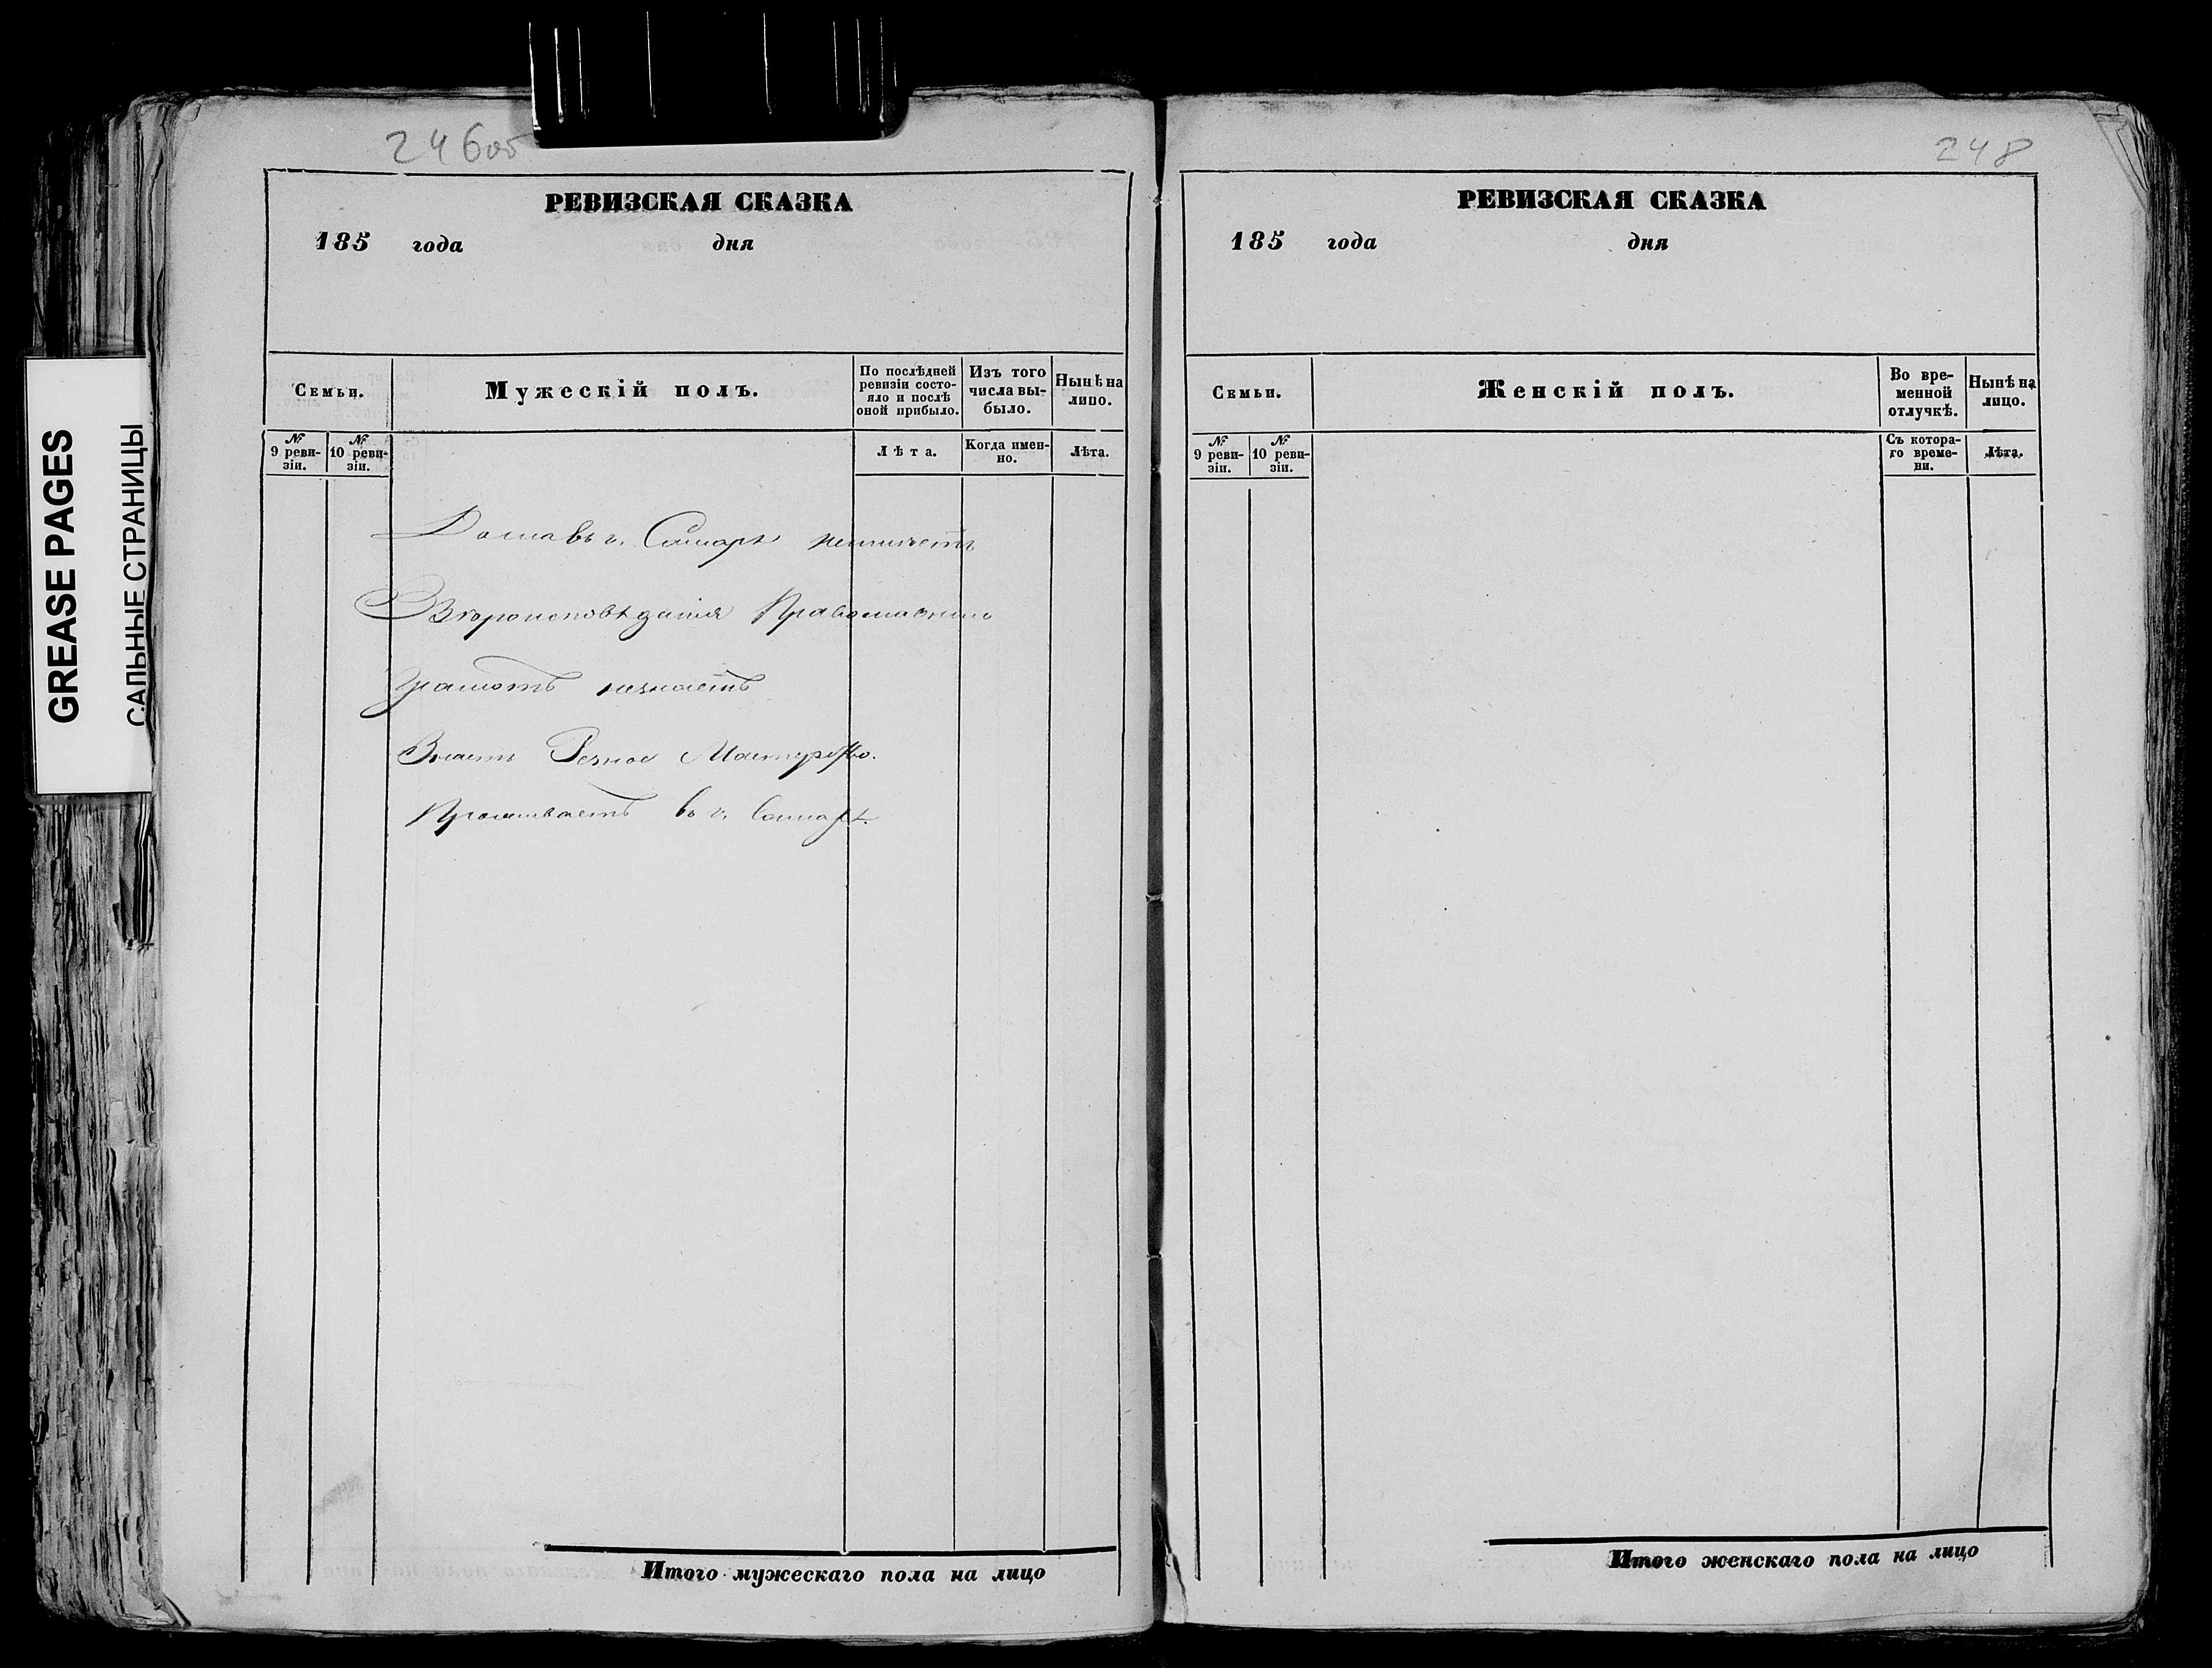 GREASE PAGES
САЛЬНЫЕ СТРАНИЦЫ
246об
РЕВИЗСКАЯ СКАЗКА
185 года дня
Семьи.
Мужескій полъ.
По послѣдней ревизіи состояло и послѣ оной прибыло.
Изъ того числа выбыло.
Нынѣ на лицо.
№ 9 ревизіи.
№ 10 ревизіи.
Лѣта.
Когда именно.
Лѣта.
Дома въ г. Самарѣ неимѣетъ
Вѣроисповѣданія Православнаго
Грамотѣ незнаетъ
Знаетъ Резное Мастерство.
Проживаетъ въ г. Самарѣ.
Итого мужескаго пола на лицо
248
РЕВИЗСКАЯ СКАЗКА
185 года дня
Семьи.
Женскій полъ.
Во временной отлучкѣ.
Нынѣ на лицо.
№ 9 ревизіи.
№ 10 ревизіи.
Съ котораго времени.
Лѣта.
Итого женскаго пола на лицо